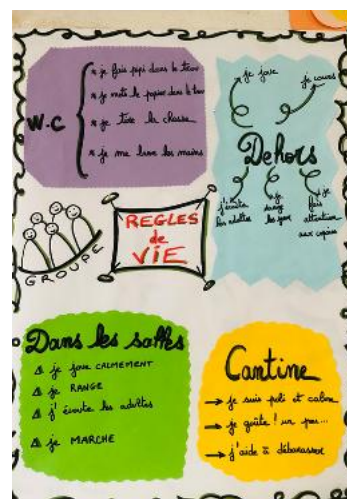 W.C
* je fais pipi dans le trou
* je mets le papier dans le trou
* je tire la chasse
* je me lave les mains
je joue
je cours
Dehors
j'écoute
les adultes
je
range
les jeux
je
fais
attention
aux copains
GROUPE
REGLES
de
ViE
Dans les salles
je joue CALMEMENT
je RANGE
j'écoute les adultes
je MARCHE
Cantine
→ je suis poli et calme
→ je goûte ! un peu...
→ j'aide à débarasser